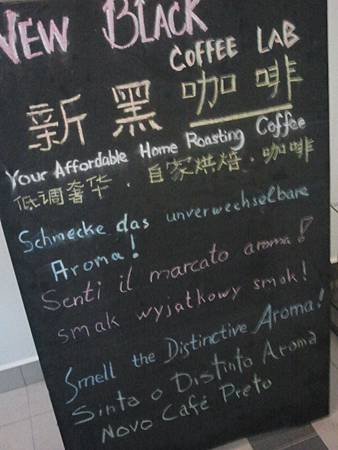 NEW BLACK
COFFEE LAB
新黑咖啡
Your Affordable Home Roasting Coffee
低调奢华·自家烘焙·咖啡
Schmecke das unverwechselbare
Aroma!
Senti il marcato aroma!
smak wyjatkowy smok!
Smell the Distinctive Aroma!
Sinta o Distinto Aroma
Novo Café Preto